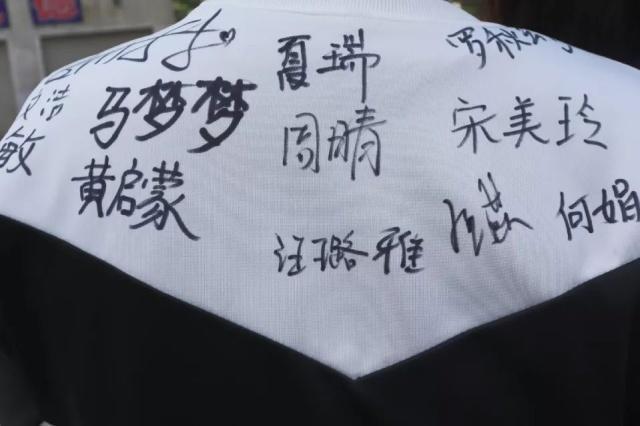 夏瑞
马梦梦
周晴
宋美玲
敏
黄启蒙
汪璐雅
何娟